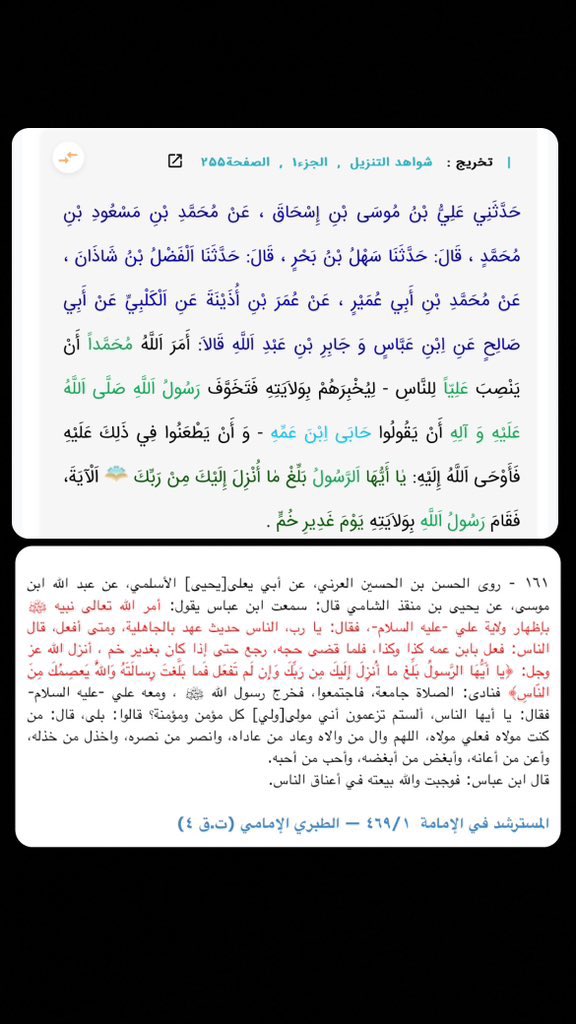 | تخريج : شواهد التنزيل , الجزء۱ , الصفحة۲۵۵
حَدَّثَنِي عَلِيُّ بْنُ مُوسَى بْنِ إِسْحَاقَ ، عَنْ مُحَمَّدِ بْنِ مَسْعُودِ بْنِ
مُحَمَّدٍ ، قَالَ: حَدَّثَنَا سَهْلُ بْنُ بَحْرٍ ، قَالَ: حَدَّثَنَا اَلْفَضْلُ بْنُ شَاذَانَ ،
عَنْ مُحَمَّدِ بْنِ أَبِي عُمَيْرٍ ، عَنْ عُمَرَ بْنِ أُذَيْنَةَ عَنِ اَلْكَلْبِيِّ عَنْ أَبِي
صَالِحٍ عَنِ اِبْنِ عَبَّاسٍ وَ جَابِرِ بْنِ عَبْدِ اَللَّهِ قَالاَ: أَمَرَ اَللَّهُ مُحَمَّداً أَنْ
يَنْصِبَ عَلِيّاً لِلنَّاسِ - لِيُخْبِرَهُمْ بِوَلاَيَتِهِ فَتَخَوَّفَ رَسُولُ اَللَّهِ صَلَّى اَللَّهُ
عَلَيْهِ وَ آلِهِ أَنْ يَقُولُوا حَابَى اِبْنَ عَمِّهِ - وَ أَنْ يَطْعَنُوا فِي ذَلِكَ عَلَيْهِ
فَأَوْحَى اَللَّهُ إِلَيْهِ: يٰا أَيُّهَا اَلرَّسُولُ بَلِّغْ مٰا أُنْزِلَ إِلَيْكَ مِنْ رَبِّكَ اَلْآيَةَ،
فَقَامَ رَسُولُ اَللَّهِ بِوَلاَيَتِهِ يَوْمَ غَدِيرِ خُمٍّ .
١٦١ - روى الحسن بن الحسين العرني، عن أبي يعلى[يحيى] الأسلمي، عن عبد الله ابن
موسى، عن يحيى بن منقذ الشامي قال: سمعت ابن عباس يقول: أمر الله تعالى نبيه ﷺ
بإظهار ولاية علي -عليه السلام-، فقال: يا رب، الناس حديث عهد بالجاهلية، ومتى أفعل، قال
الناس: فعل بابن عمه كذا وكذا، فلما قضى حجه، رجع حتى إذا كان بغدير خم ، أنزل الله عز
وجل: ﴿يا أَيُّهَا الرَّسولُ بَلِّغ ما أُنزِلَ إِلَيكَ مِن رَبِّكَ وَإِن لَم تَفعَل فَما بَلَّغتَ رِسالَتَهُ وَاللَّهُ يَعصِمُكَ مِنَ
النّاسِ﴾ فنادى: الصلاة جامعة، فاجتمعوا، فخرج رسول الله ﷺ ، ومعه علي -عليه السلام-
فقال: يا أيها الناس، ألستم تزعمون أني مولى[ولي] كل مؤمن ومؤمنة؟ قالوا: بلى، قال: من
كنت مولاه فعلي مولاه، اللهم وال من والاه وعاد من عاداه، وانصر من نصره، واخذل من خذله،
وأعن من أعانه، وأبغض من أبغضه، وأحب من أحبه.
قال ابن عباس: فوجبت والله بيعته في أعناق الناس.
المسترشد في الإمامة ٤٦٩/١ — الطبري الإمامي (ت.ق ٤)